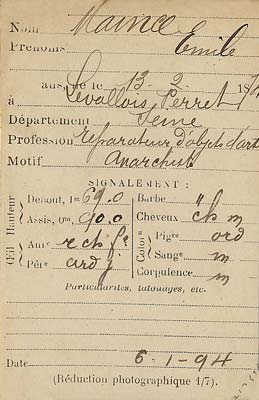 Nom Maince
Prénoms Emile
ans, né le 13. 2. 187
à Levallois Perret
Département Seine
Profession réparateur d'objets d'art
Motif Anarchiste
SIGNALEMENT :
Hauteur
Debout, 1m 69.0
Assis, 0m, 90.0
Œil
Aure r ch fe
Pére ard j
Barbe
Cheveux ch m
Color
Pigre ord
Sange m
Corpulence m
Particularités, tatouages, etc.
Date 6-1-94
(Réduction photographique 1/7).